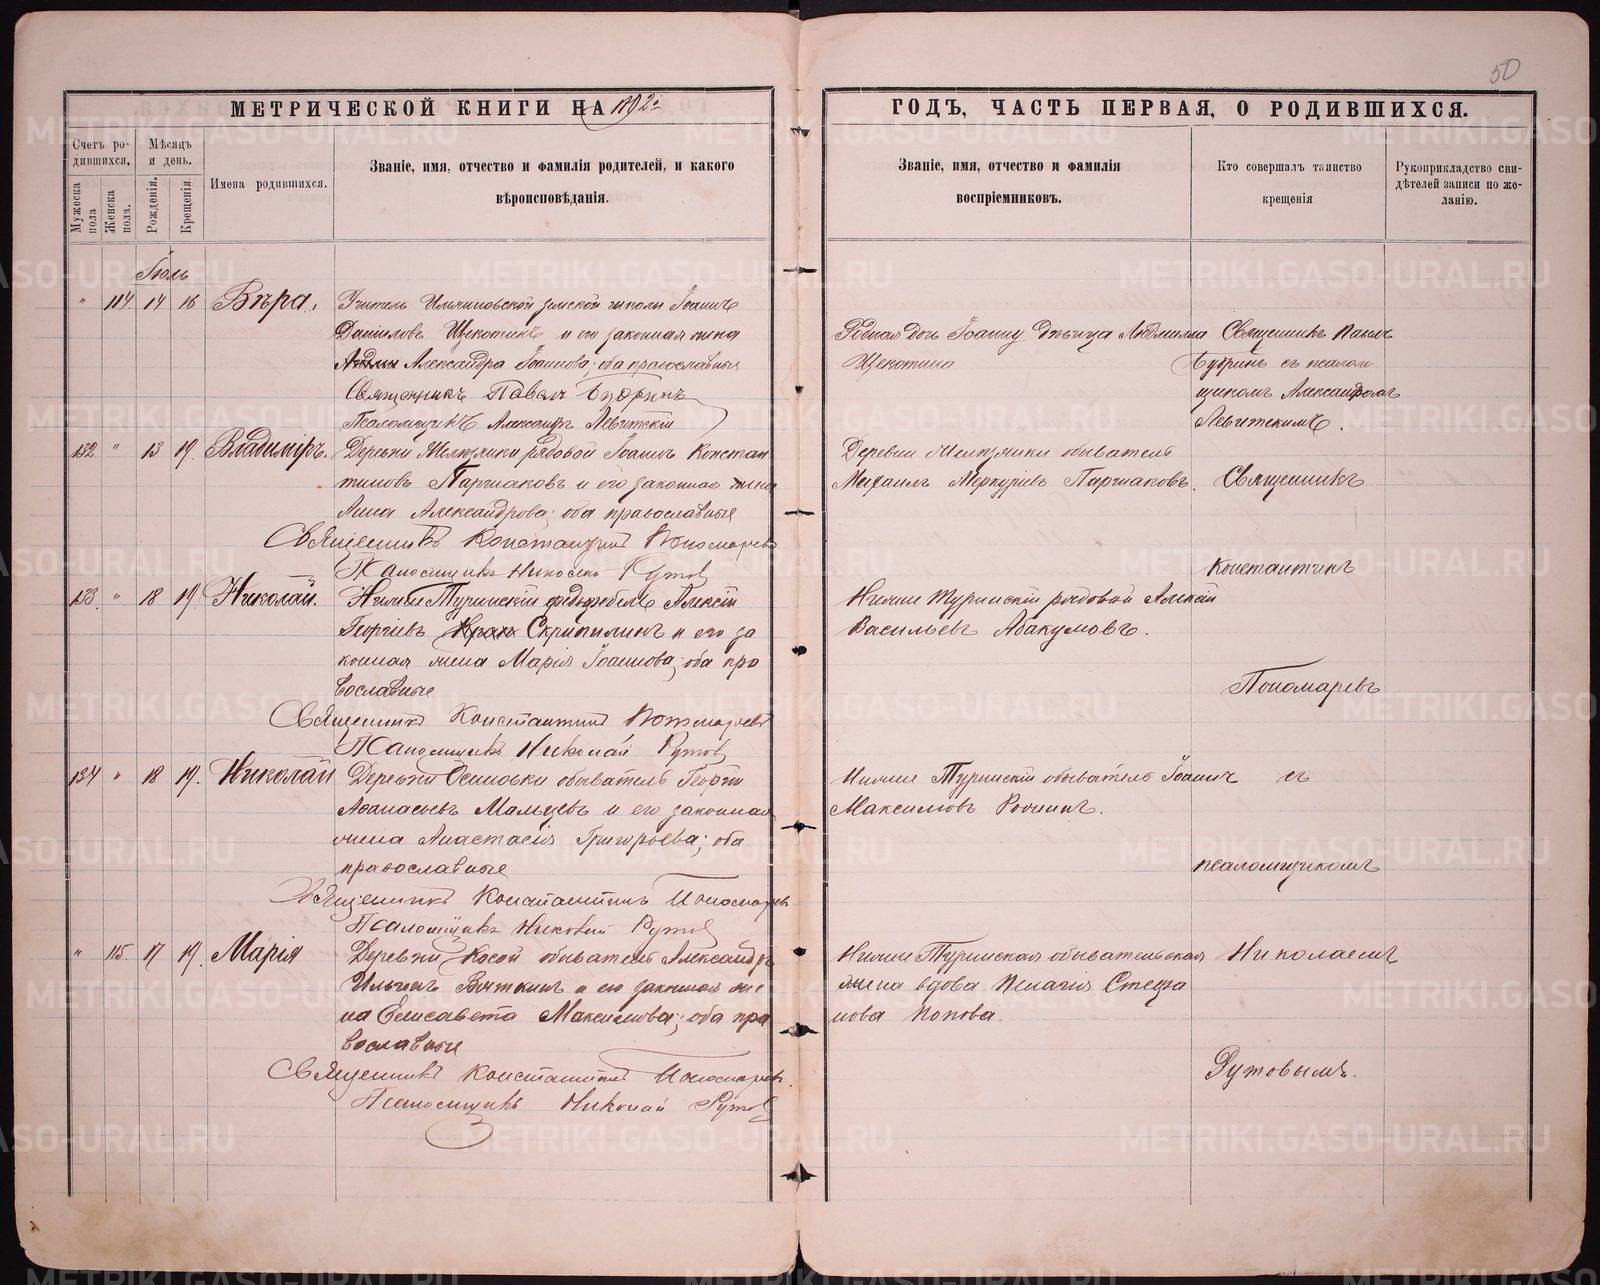 50
МЕТРИЧЕСКОЙ КНИГИ НА
ГОДЪ, ЧАСТЬ ПЕРВАЯ, О РОДИВШИХСЯ.
Счетъ ро-
дившихся.
Мужеска
пола
Женска
пола.
Мѣсяцъ
и день.
Рожденія.
Крещенія.
Имена родившихся.
Званіе, имя, отчество и фамилія родителей, и какого
вѣроисповѣданія.
Званіе, имя, отчество и фамилія
воспріемниковъ.
Кто совершалъ таинство
крещенія
Рукоприкладство сви-
дѣтелей записи по же-
ланію.
Іюль
" 114. 14 16 Вѣра.
Учитель земской школы Іоаннъ
Даніиловъ Щекотинъ и его законная жена
Александра Іоаннова; оба православные
Священникъ Павелъ Бударинъ
Псаломщикъ Александръ Левитскій
Родная дочь Іоанну дѣвица Людмилла
Щекотина
Священникъ Павелъ
съ псалом
щикомъ Александромъ
Левитскимъ.
132 " 13 19. Владиміръ.
Деревни рядовой Іоаннъ Констан
тиновъ Паршаковъ и его законная жена
Анна Александрова; оба православные
Священникъ Константинъ Пономаревъ
Псаломщикъ Николай Рутов
Деревни обыватель
Михаилъ Меркурiевъ Паршаковъ.
Священникъ
Константинъ
133. " 18 19. Николай.
Нижне Туринскій Алексій
Георгіевъ Скрипилинъ и его за
конная жена Марія Іоаннова; оба пра
вославные
Священникъ Константинъ Пономаревъ
Псаломщикъ Николай Рутов
Нижне Туринскій рядовой Алексій
Васильевъ Абакумовъ.
Пономаревъ
134 " 18 19. Николай
Деревни Осиновки обыватель Георгій
Афанасьевъ Мальцевъ и его законная
жена Анастасія Григорьева; оба
православные
Священникъ Константинъ Пономаревъ
Псаломщикъ Николай Рутов
Нижне Туринскій обыватель Іоаннъ
Максимовъ
съ
псаломщикомъ
" 115. 17 19. Марія
Деревни Косой обыватель Александръ
Ильинъ Вяткинъ и его законная же
на Елисавета Максимова; оба пра
вославные
Священникъ Константинъ Пономаревъ.
Псаломщикъ Николай Рутов
Нижне Туринская обывательская
жена вдова Пелагія Стефа
нова Попова.
Николаемъ
Рутовымъ.
METRIKI.GASO-URAL.RU